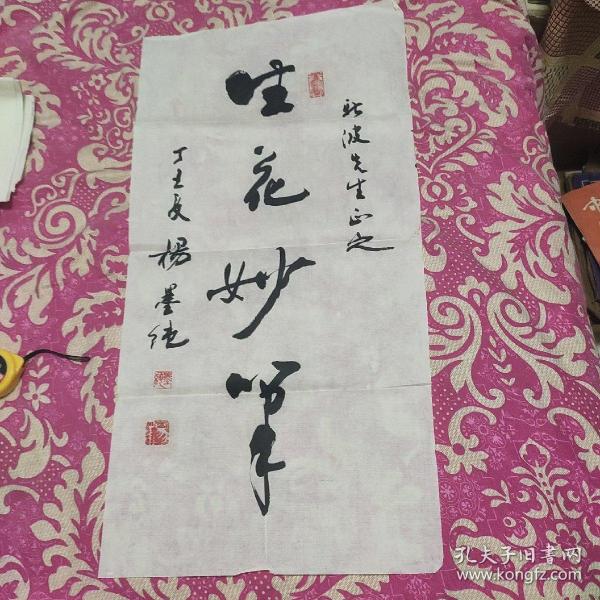 波先生正之
生花妙筆
丁丑夏楊墨
孔夫子旧书网
www.kongfz.com